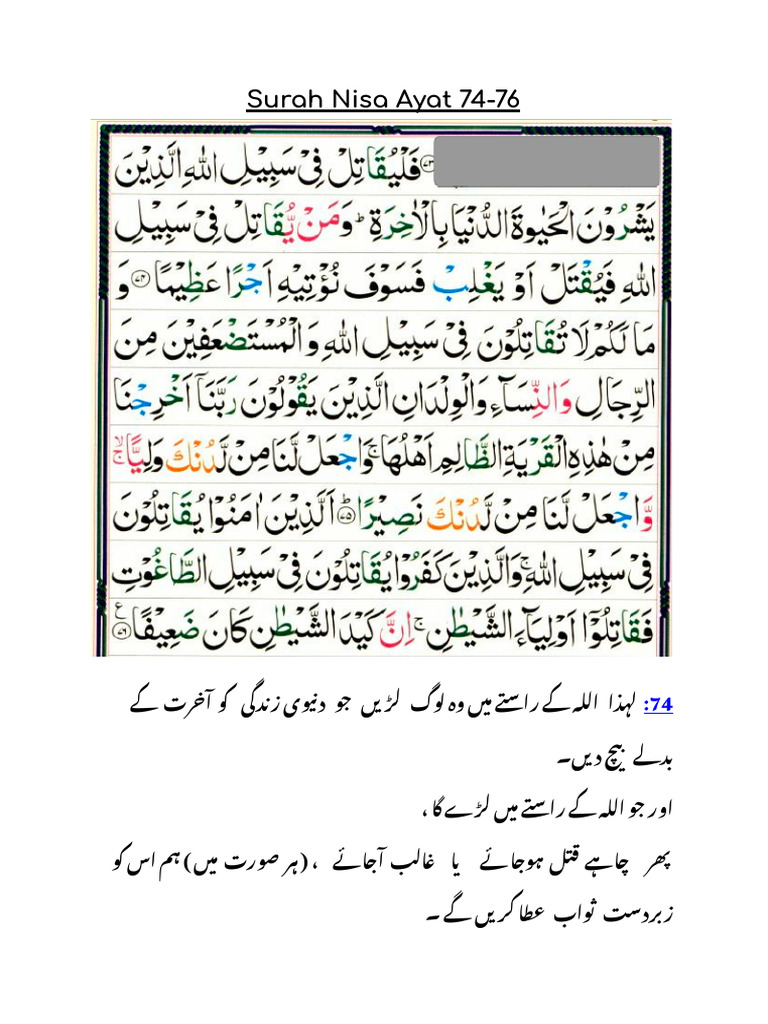 Surah Nisa Ayat 74-76
۷۳ فَلْيُقَاتِلْ فِيْ سَبِيْلِ اللّٰهِ الَّذِيْنَ
يَشْرُوْنَ الْحَيٰوةَ الدُّنْيَا بِالْاٰخِرَةِ ؕ وَمَنْ يُّقَاتِلْ فِيْ سَبِيْلِ
اللّٰهِ فَيُقْتَلْ اَوْ يَغْلِبْ فَسَوْفَ نُؤْتِيْهِ اَجْرًا عَظِيْمًا ۷۴ وَ
مَا لَكُمْ لَا تُقَاتِلُوْنَ فِيْ سَبِيْلِ اللّٰهِ وَالْمُسْتَضْعَفِيْنَ مِنَ
الرِّجَالِ وَالنِّسَآءِ وَالْوِلْدَانِ الَّذِيْنَ يَقُوْلُوْنَ رَبَّنَاۤ اَخْرِجْنَا
مِنْ هٰذِهِ الْقَرْيَةِ الظَّالِمِ اَهْلُهَا ۚ وَاجْعَلْ لَّنَا مِنْ لَّدُنْكَ وَلِيًّا ۙۚ
وَّاجْعَلْ لَّنَا مِنْ لَّدُنْكَ نَصِيْرًا ؕ ۷۵ اَلَّذِيْنَ اٰمَنُوْا يُقَاتِلُوْنَ
فِيْ سَبِيْلِ اللّٰهِ ۚ وَالَّذِيْنَ كَفَرُوْا يُقَاتِلُوْنَ فِيْ سَبِيْلِ الطَّاغُوْتِ
فَقَاتِلُوْۤا اَوْلِيَآءَ الشَّيْطٰنِ ۚ اِنَّ كَيْدَ الشَّيْطٰنِ كَانَ ضَعِيْفًا ۷۶ ع
74: لہذا اللہ کے راستے میں وہ لوگ لڑیں جو دنیوی زندگی کو آخرت کے
بدلے بیچ دیں۔
اور جو اللہ کے راستے میں لڑے گا،
پھر چاہے قتل ہوجائے یا غالب آجائے ، (ہر صورت میں) ہم اس کو
زبردست ثواب عطا کریں گے ۔